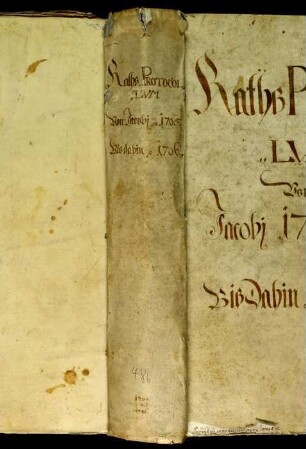 Raths PROTOCOL
LVM
Von Jacobj 1705
Bis dahin 1706
486
Raths P
LV
Von
Jacobj 17
Bis dahin